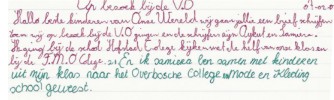 Op bezoek bij de V.O 07-02-0
Hallo beste kinderen van Onze Wereld wij gaan alle een brief schrijven
toen wij op bezoek bij de V.O gingen en de schrijfers zijn Aykut en Samira.
Ik ging bij de school Hofstad College kijken met de helft van onze klas en
bij de F.M.O College. En ik samira ben samen met kinderen
uit mijn klas naar het Overbosche College Mode en Kleding
school geweest.